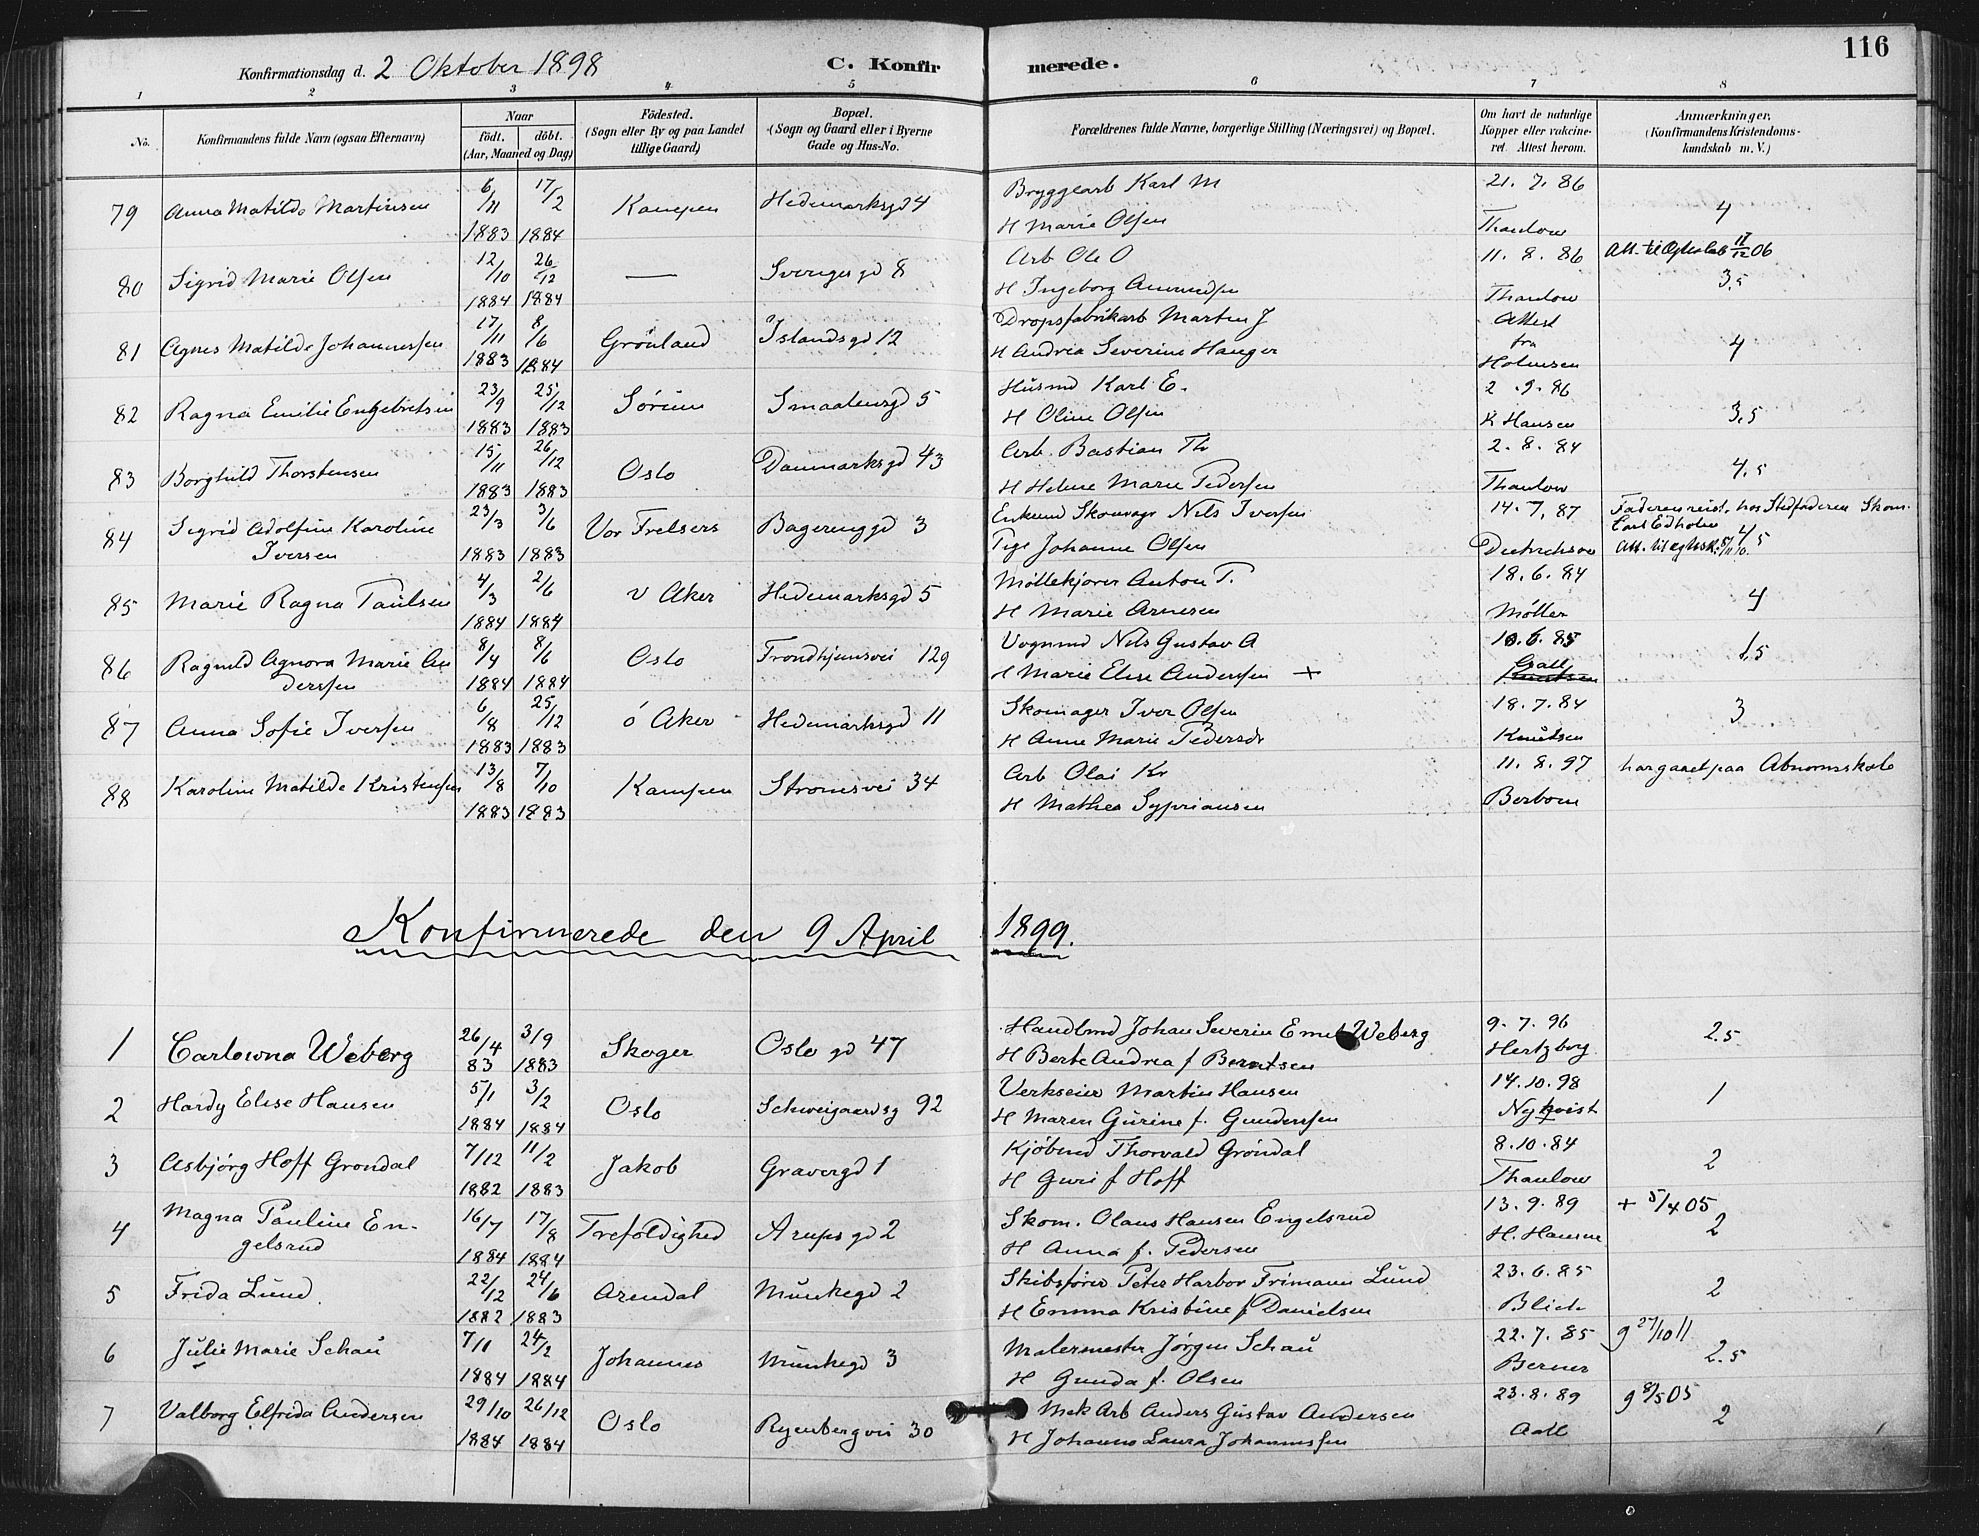 116
Konfirmationsdag d. 2 Oktober 1898 C. Konfirmerede.
1 2 3 4 5 6 7 8
No. Konfirmandens fulde Navn (ogsaa Efternavn) Naar født. døbt. (Aar, Maaned og Dag) Födested. (Sogn eller By og paa Landet tillige Gaard) Bopæl. (Sogn og Gaard eller i Byerne Gade og Hus-No. Forældrenes fulde Navne, borgerlige Stilling (Næringsvei) og Bopæl. Om havt de naturlige Kopper eller vakcineret. Attest herom. Anmærkninger. (Konfirmandens Kristendomskundskab m. V.)
79 Anna Matilde Martinsen 6/11 1883 17/2 1884 Kampen Hedemarksgd 4 Bryggearb Karl M 21. 7. 86
H Marie Olsen Thaulow 4
80 Sigrid Marie Olsen 12/10 1884 26/12 1884 — Sveriges gd 8 Arb Ole O 11. 8. 86 Att. til 17/12 06
H Ingeborg Amundsen Thaulow 3,5
81 Agnes Matilde Johannessen 17/11 1883 8/6 1884 Grönland Islandsgd 12 Dropsfabrikarb Martin J Attest
H Andrea Severine Hanger fra Holmsen 4
82 Ragna Emilie Engebretsen 23/9 1883 25/12 1883 Sörum Smaalensgd 5 Husmd Karl E. 2. 9. 86
H Oline Olsen K Hansen 3,5
83 Borghild Thorstensen 15/11 1883 26/12 1883 Oslo Danmarksgd 43 Arb. Bastian Th 2. 8. 84
H Helene Marie Pedersen Thaulow 4,5
84 Sigrid Adolfine Karoline Iversen 23/3 1883 3/6 1883 Vor Frelsers Bagerenggd 3 Enkemd Skomagr Nils Iversen 14. 7. 87 Faderen reist, hos Stedfaderen Skom. Carl Edholm
Pige Johanne Olsen Dietrichson 4,5
85 Marie Ragna Paulsen 4/3 1884 2/6 1884 v Aker Hedemarksgd 5 Möllekjører Anton P. 18. 6. 84
H Marie Arnesen Möller 4
86 Ragnild Agnora Marie Anderssen 8/4 1884 8/6 1884 Oslo Trondhjemsvei 129 Vognmd Nils Gustav A 10. 6. 85
H Marie Elise Anderssen + Aall Knutsen 1,5
87 Anna Sofie Iversen 6/8 1883 25/12 1883 ö Aker Hedemarksgd 11 Skomager Iver Olsen 18. 7. 84
H Anne Marie Pedersdr Knutsen 3
88 Karoline Matilde Kristensen 13/8 1883 7/10 1883 Kampen Strömsvei 34 Arb Olai Kr 11. 8. 97 har gaaet paa Abnormskole
H Mathea Sypriansen Berbom
Konfirmerede den 9 April 1899.
1 Carlowna Weberg 26/4 83 3/9 1883 Skoger Oslo gd 47 Handlmd Johan Severin Emil Weberg 9. 7. 96
H Berte Andrea f Berntsen Hertzberg 2.5
2 Hardy Elise Hansen 5/1 1884 3/2 1884 Oslo Schweigaardsg 92 Verkseier Martin Hansen 14. 10. 98
H Maren Gurine f. Gundersen Nykvist 1
3 Asbjörg Hoff Gröndal 7/12 1882 11/2 1883 Jakob Gravergd 1 Kjöbmd Thorvald Gröndal 8. 10. 84
H Guri f Hoff Thaulow 2
4 Magna Pauline Engelsrud 16/7 1884 17/8 1884 Trefoldighed Arups gd 2 Skom. Olaus Hansen Engelsrud 13. 9. 89 + 5/4 05
H Anna f. Pedersen H. Hansen 2
5 Frida Lund 22/12 1882 24/6 1883 Arendal Munkegd 2 Skibsförer Peter Harbor Frimann Lund 23. 6. 85
H Emma Kristine f Danielsen Blich 2
6 Julie Marie Schau 7/11 1884 24/2 1884 Johannes Munkegd 3 Malermester Jörgen Schau 22. 7. 85 g 27/10 11
H Gunda f. Olsen Berner 2.5
7 Valborg Elfrida Andersen 29/10 1884 26/12 1884 Oslo Ryenbergvei 30 Mek Arb Anders Gustav Andersen 23. 8. 89 g 8/5 05
H Johanne Laura Johannessen Aall 2